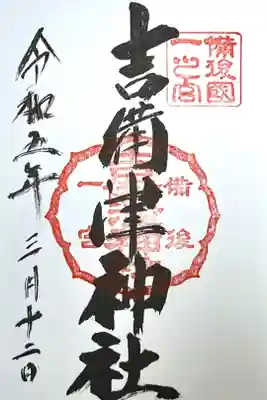 備後國
一之宮
吉備津神社
備後
一宮
令和五年 三月十二日